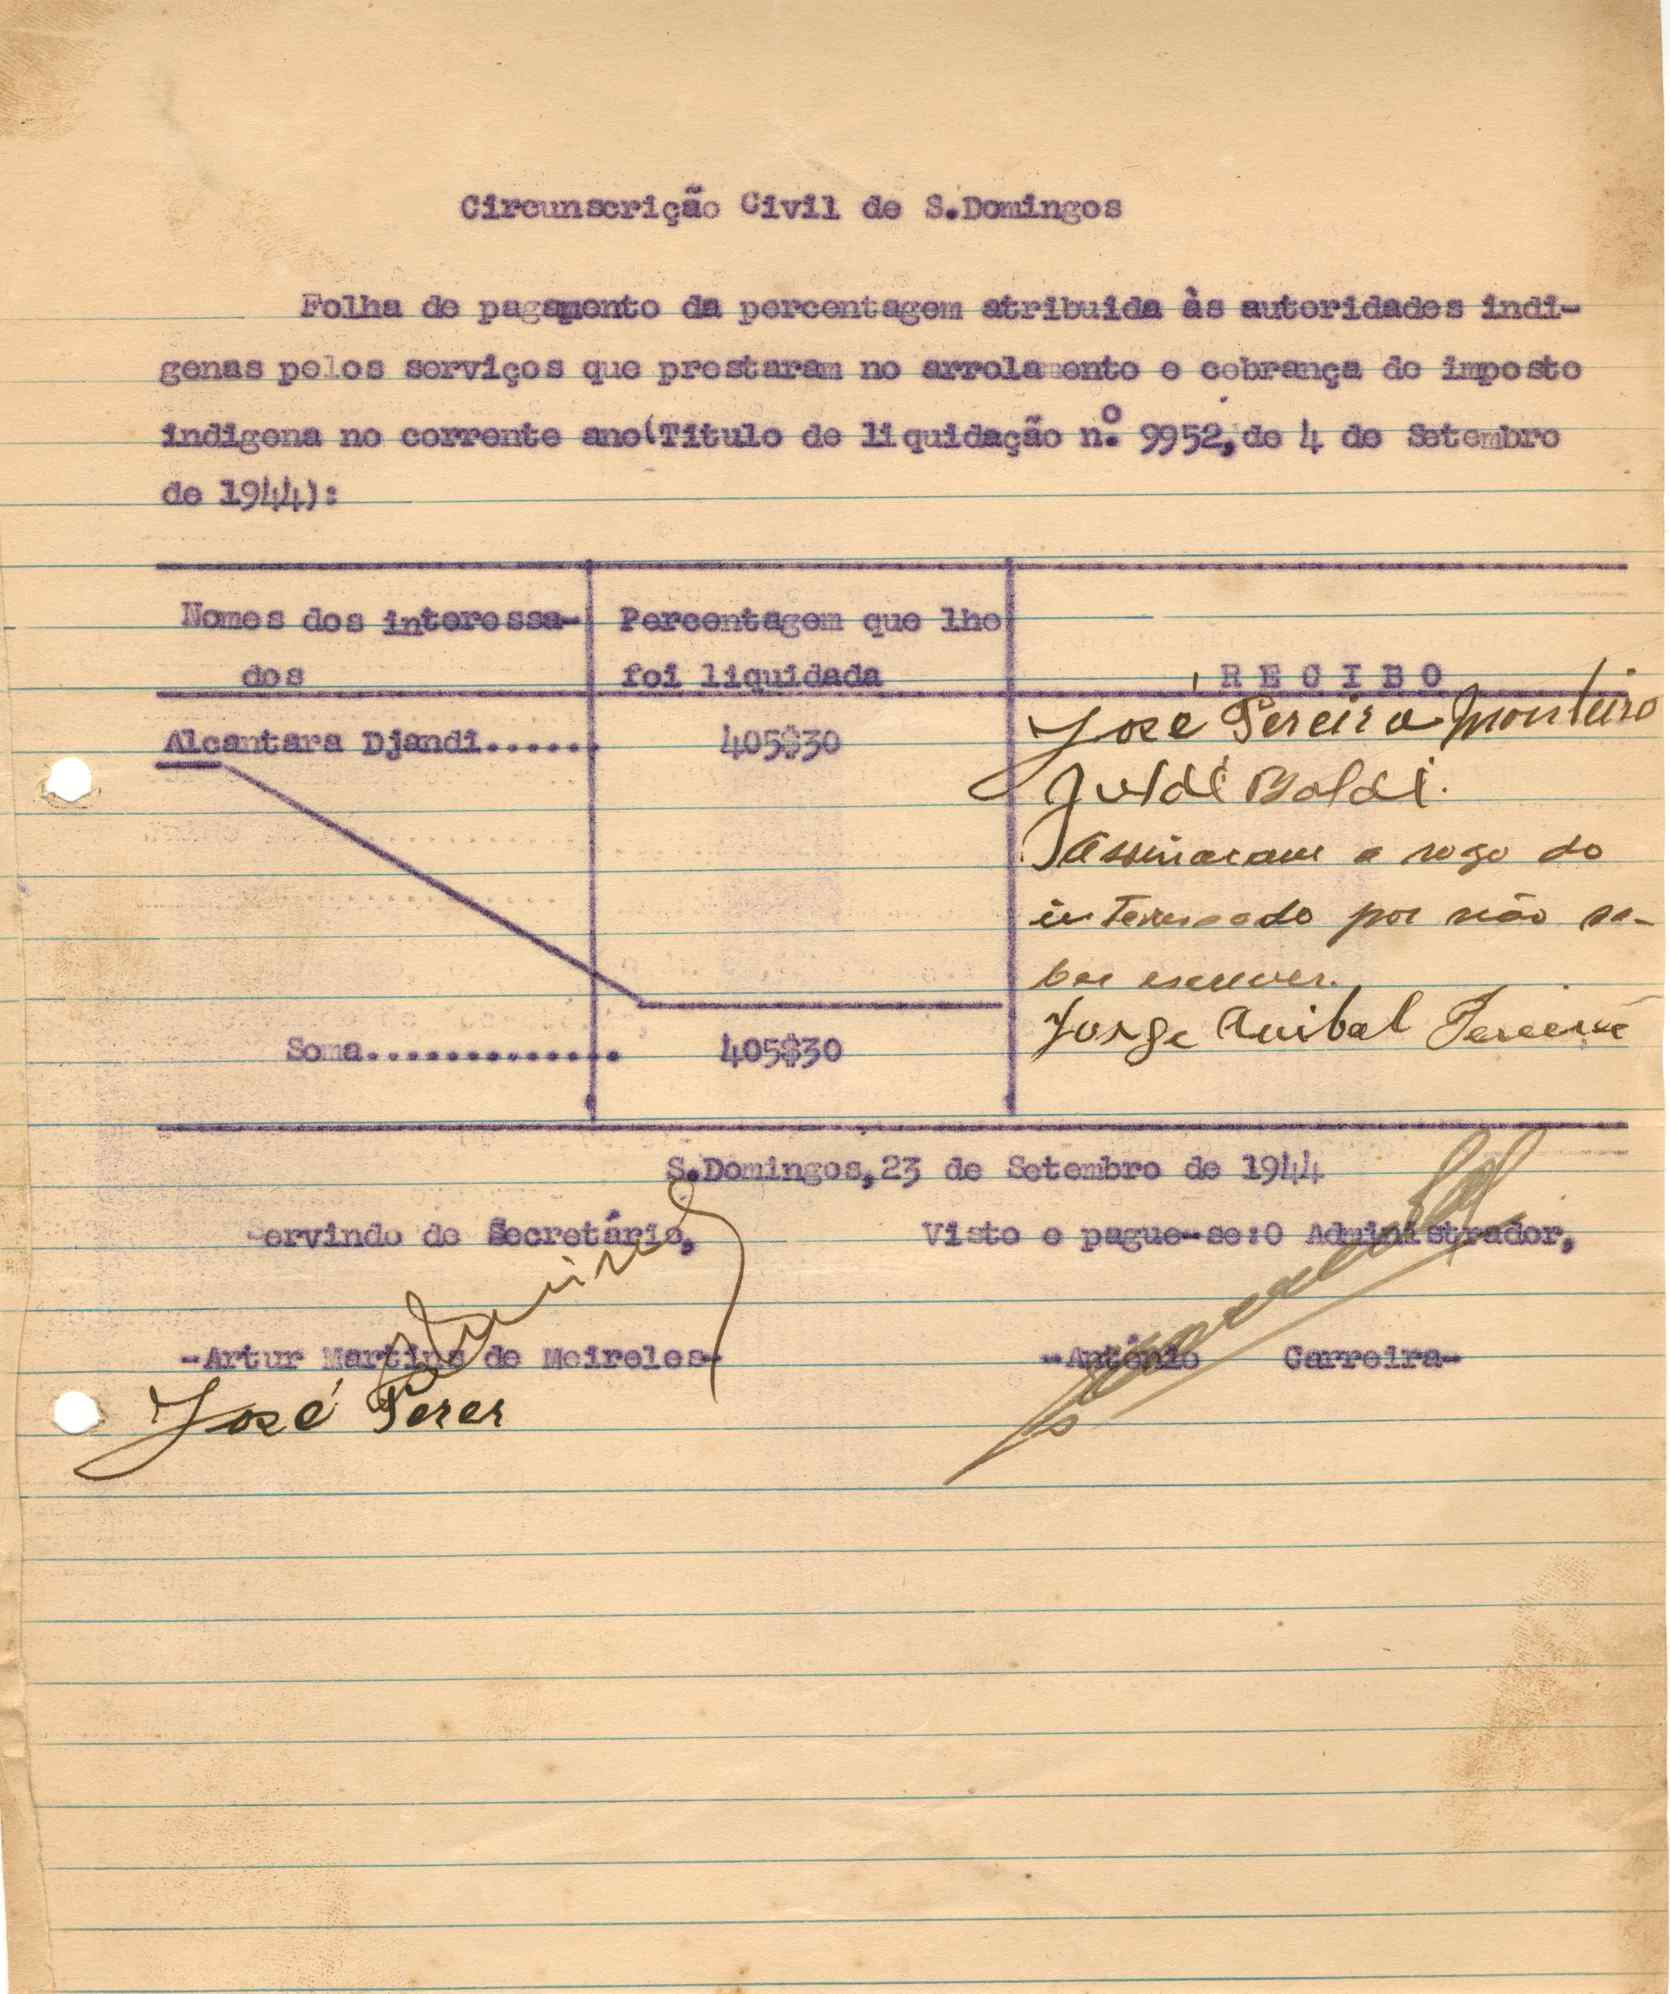 Circunscrição Civil de S.Domingos
Folha de pagamento da percentagem atribuida às autoridades indi-
genas pelos serviços que prestaram no arrolamento e cobrança do imposto
indigena no corrente ano(Titulo de liquidação n.º 9952,de 4 de Setembro
de 1944):
Nomes dos interessa-
dos
Percentagem que lhe
foi liquidada
RECIBO
Alcantara Djandi......
405$30
José Pereira Monteiro
Juldé Baldé.
Assinaram a rogo do
interessado por não sa-
ber escrever.
Jorge Anibal Pereira
Soma..............
405$30
S.Domingos,23 de Setembro de 1944
Servindo de Secretário,
Visto e pague-se:O Administrador,
-Artur Martins de Meireles-
-António Carreira-
José Perer